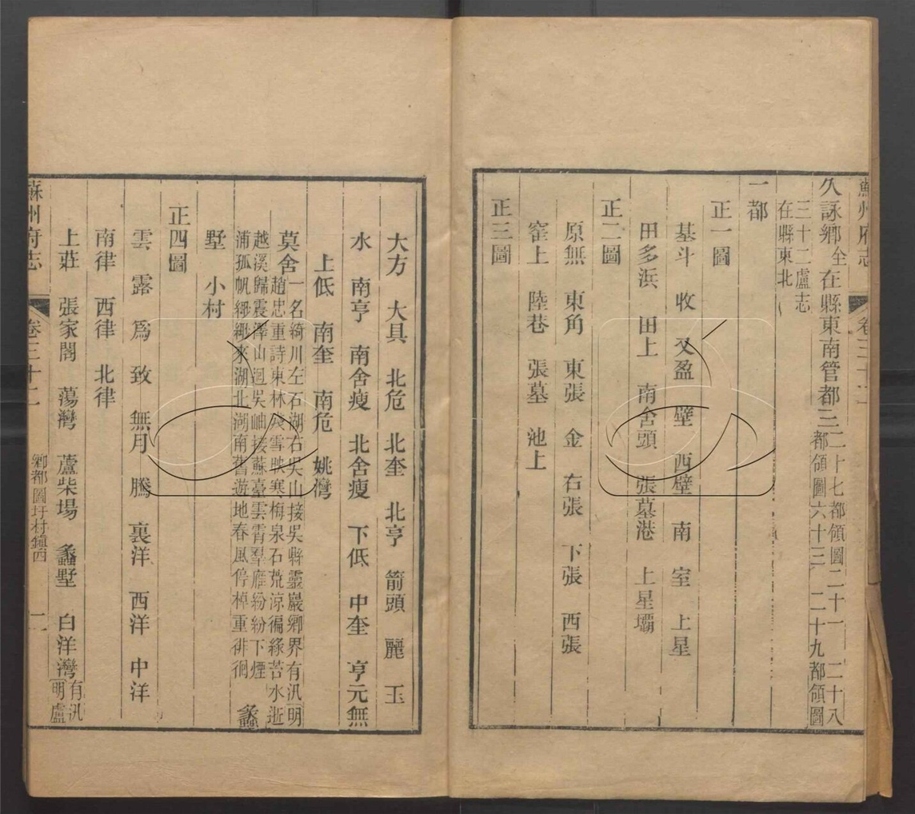 蘇州府志 卷三十二
久詠鄉全在縣東南管都三二十七都領圖二十一 二十八
都領圖六十三 二十九都領圖
三十二盧志
在縣東北
一都
正一圖
基斗 收 又盈 壁 西壁 南 室 上星
田多浜 田上 南舍頭 張墓港 上星壩
正二圖
原無 東角 東張 金 右張 下張 西張
窑上 陸巷 張墓 池上
正三圖
大方 大具 北危 北奎 北亨 箭頭 麗 玉
水 南亨 南舍瘦 北舍瘦 下低 中奎 亨元無
上低 南奎 南危 姚灣
莫舍一名綺川左石湖右吳山接吳 靈巖鄉界有汛明
趙忠重詩東林 雪映寒梅泉石荒涼徧綠苔水逝
越溪歸震澤山迴吳岫接蘇臺雲霄 雁紛紛下煙
浦孤帆 來湖北湖南舊遊地春風停棹重徘徊
蠡
墅 小村
正四圖
雲 露 爲 致 無月 騰 裏洋 西洋 中洋
南律 西律 北律
上莊 張家閣 蕩灣 蘆柴場 蠡墅 白洋灣有汛
明盧
蘇州府志 卷三十二 鄉都圖圩村鎮四 二